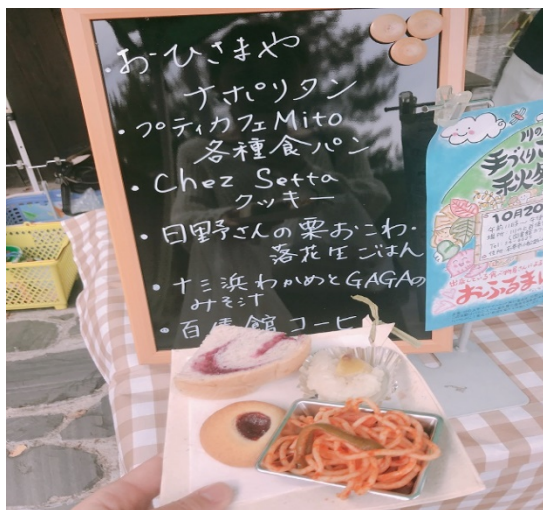 ・おーひさまや
ナポリタン
・プティカフェMito
各種食パン
・Chez Setta
クッキー
・日野さんの栗おこわ・
落花生ごはん
・十三浜わかめとGAGAの
みそ汁
・百俵館コーヒ
川の
手づくり
秋
10月20
おふるま